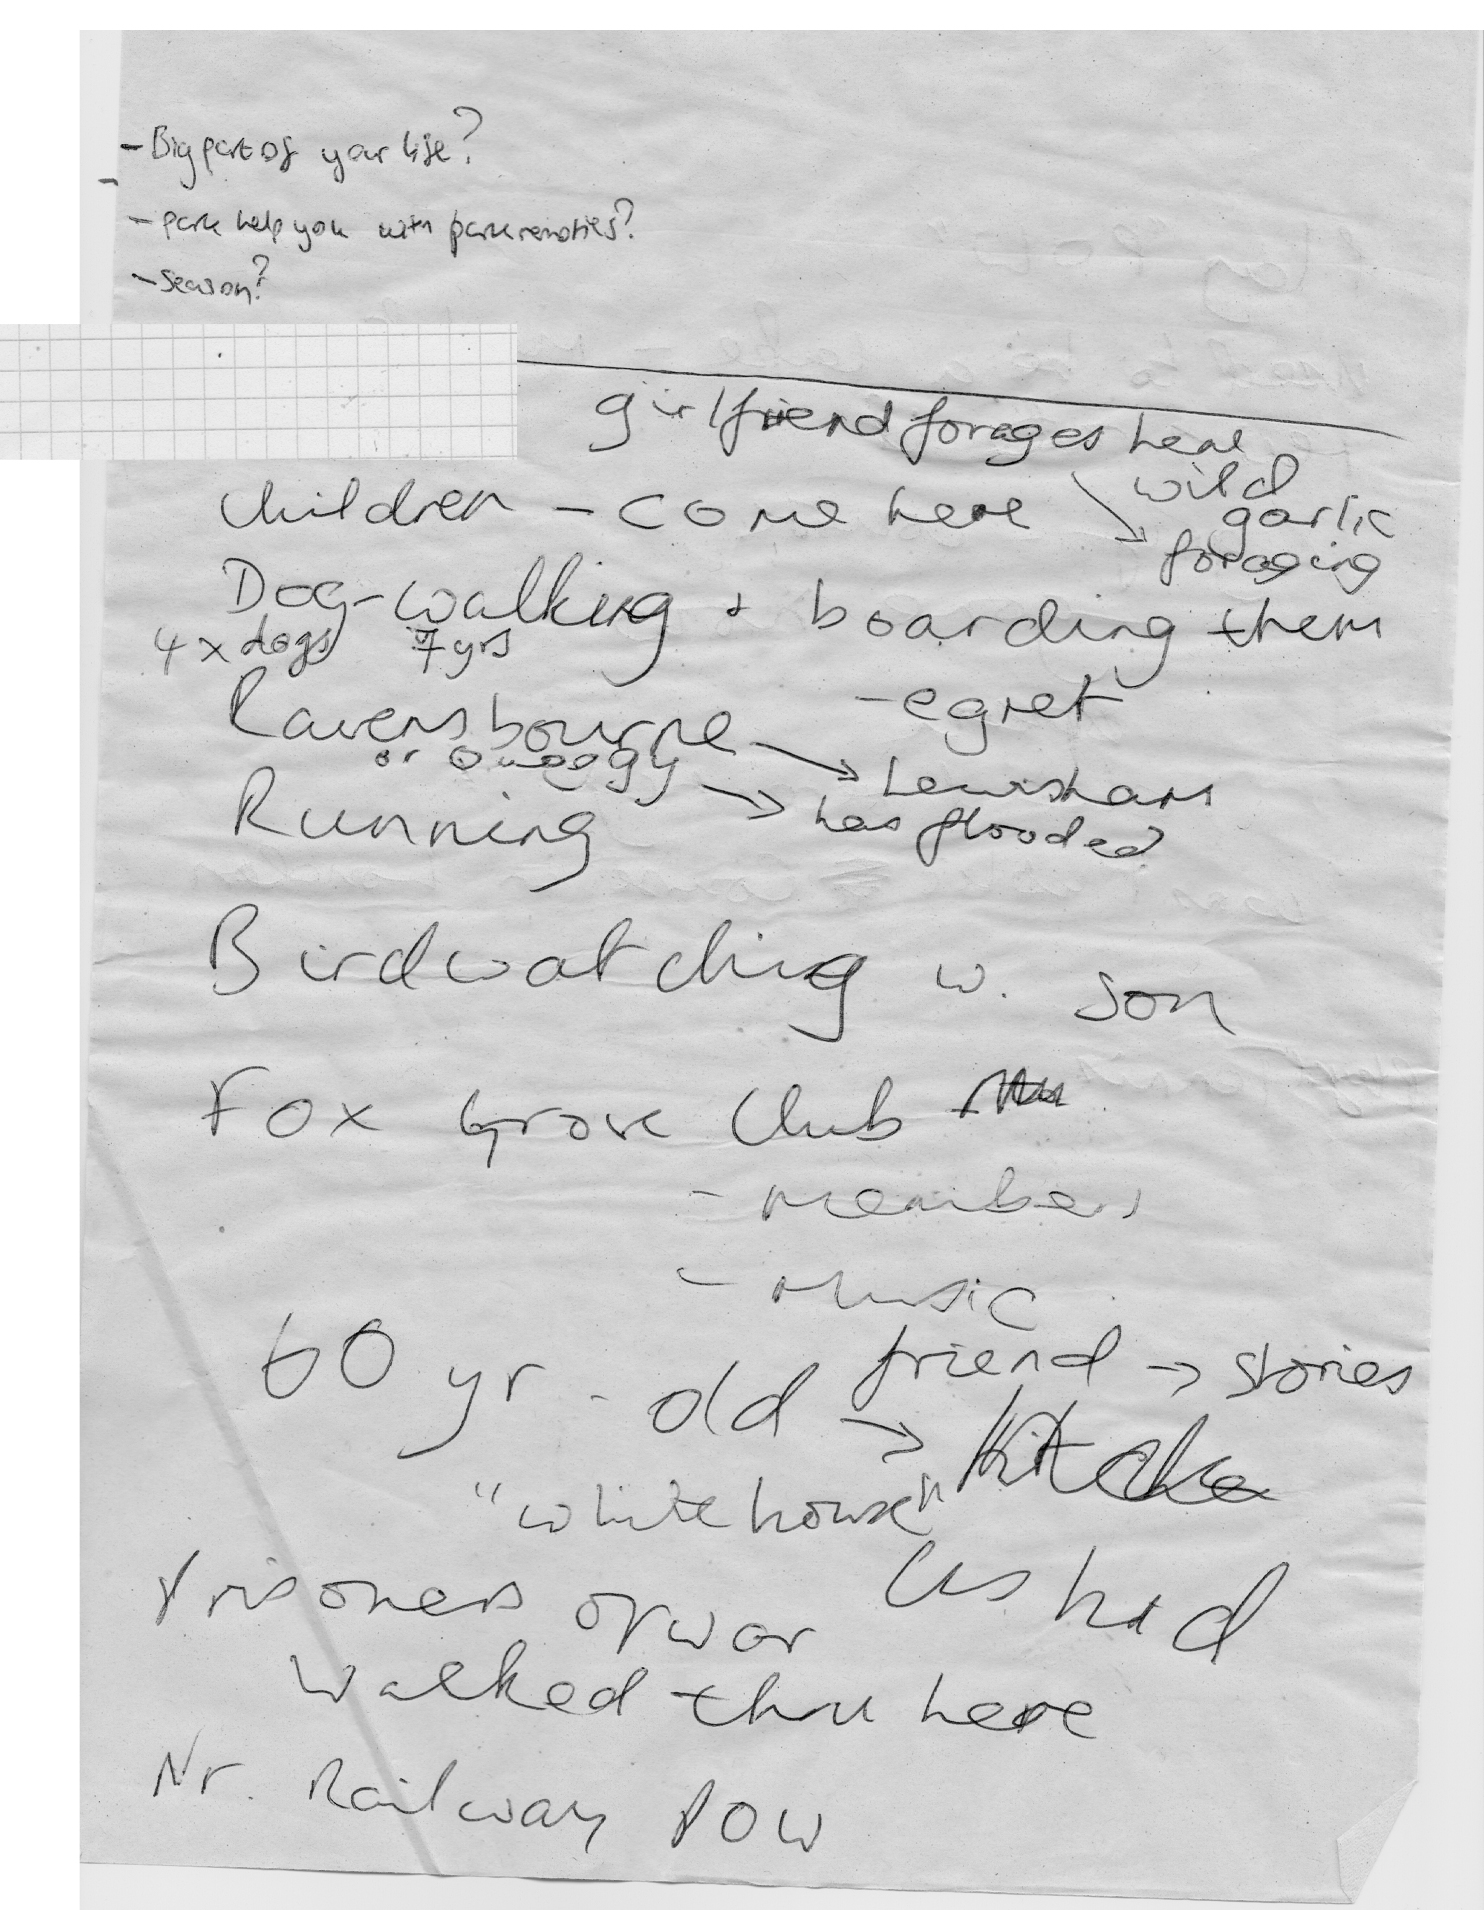 - Big part of your life?
- park help you with park memories?
- season?
girlfriend forages here
wild
garlic
foraging
Children - come here
Dog-walking + boarding them
4 x dogs 7 yrs
Ravensbourne - egret
or Quaggy Lewisham
Running has flooded
Birdwatching w. son
Fox Grove Club
- members
- music
60 yr - old friend → stories
"white house"
Prisoners of war
walked thru here
Nr. Railway POW